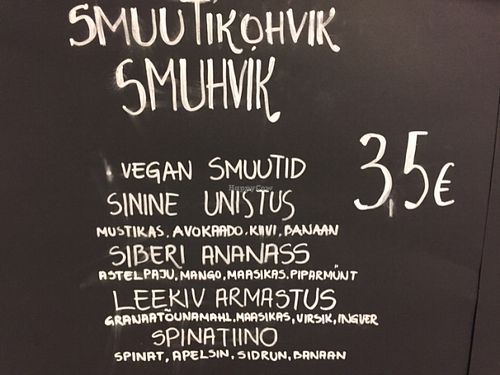 SMUUTIKOHVIK
SMUHVIK
VEGAN SMUUTID
3,5€
SININE UNISTUS
MUSTIKAS, AVOKAADO, KIIVI, BANAAN
SIBERI ANANASS
ASTELPAJU, MANGO, MAASIKAS, PIPARMÜNT
LEEKIV ARMASTUS
GRANAATÕUNAMAHL, MAASIKAS, VIRSIK, INGVER
SPINATIINO
SPINAT, APELSIN, SIDRUN, BANAAN
HappyCow